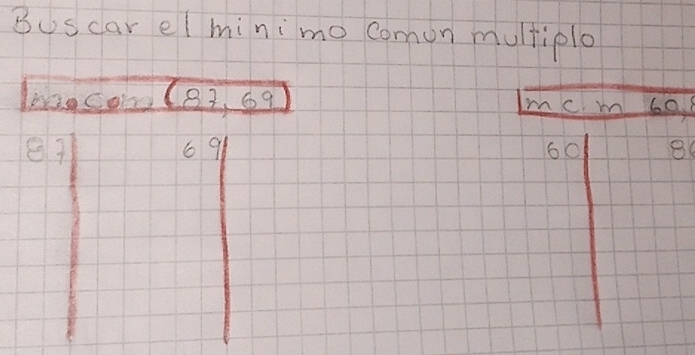 Buscar el minimo comun multiplo
m.c.m (87, 69)
mc.m 60,8
87 69 60 8